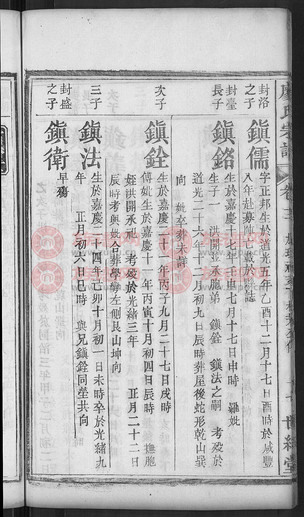 封洛
之子
鎮儒
字正邦生於道光五年乙酉十二月十七日酉時於咸豐
八年赴募陣亡載於縣誌
封臺
長子
鎮銘
生於嘉慶十七年壬申七月十七日申時 羅姚
生子一 洪開 鎮銓 鎮法之嗣 考歿於
道光二十六年十二月十九日辰時葬屋後蛇形乾山巽
向 姚卒葬未詳
次子
鎮銓
生於嘉慶二十一年丙子九月二十七日戌時
傅姚生於嘉慶十一年丙寅十月初四日辰時 撫胞
姪洪開承祧 考歿於光緒三年 正月二十二日
辰時考與姚合葬學學左側艮山坤向
三子
鎮法
生於嘉慶二十四年己卯十月初一日未時卒於光緒九
年 正月初六日巳時 與兄鎮銓同塋共向
封盛
之子
鎮衛
早殤